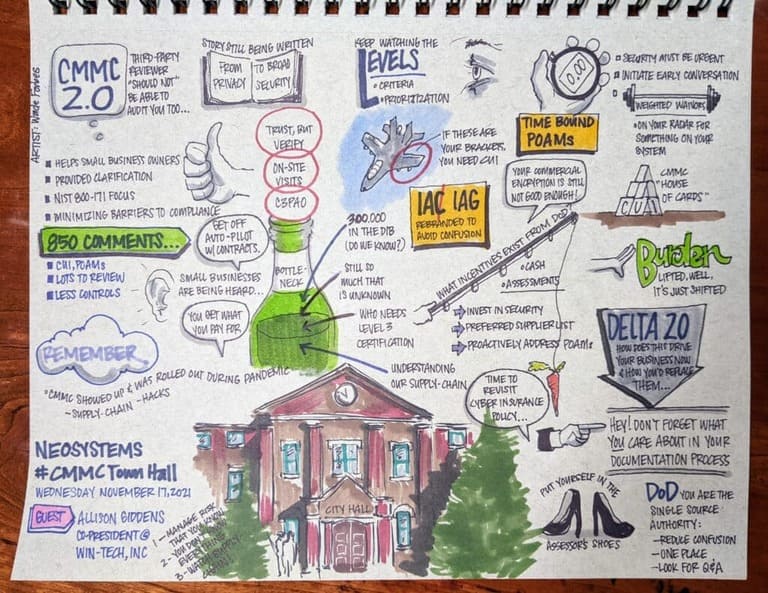 ARTIST: Wade Forbes
CMMC
2.0
THIRD-PARTY
REVIEWER
"SHOULD NOT"
BE ABLE TO
AUDIT YOU TOO...
STORY STILL BEING WRITTEN
FROM
PRIVACY
TO BROAD
SECURITY
KEEP WATCHING THE
LEVELS
• CRITERIA
• PRIORITIZATION
0.00
TIME BOUND
POAMs
SECURITY MUST BE URGENT
INITIATE EARLY CONVERSATION
WEIGHTED
• ON YOUR RADAR FOR
SOMETHING ON YOUR
SYSTEM
HELPS SMALL BUSINESS OWNERS
PROVIDED CLARIFICATION
NIST 800-171 FOCUS
MINIMIZING BARRIERS TO COMPLIANCE
TRUST, BUT
VERIFY
ON-SITE
VISITS
C3PAO
IF THESE ARE
YOUR BRACKETS,
YOU NEED CUI
YOUR COMMERCIAL
ENCRYPTION IS STILL
NOT GOOD ENOUGH!
CMMC
"HOUSE
OF CARDS"
CUI
850 COMMENTS...
CUI, POAMs
LOTS TO REVIEW
LESS CONTROLS
GET OFF
AUTO-PILOT
W/ CONTRACTS.
SMALL BUSINESSES
ARE BEING HEARD...
YOU GET WHAT
YOU PAY FOR
BOTTLE-
NECK
300,000
IN THE DIB
(DO WE KNOW?)
STILL SO
MUCH THAT
IS UNKNOWN
WHO NEEDS
LEVEL 3
CERTIFICATION
UNDERSTANDING
OUR SUPPLY-CHAIN
IAC IAG
REBRANDED TO
AVOID CONFUSION
WHAT INCENTIVES EXIST FROM DOD
CASH
ASSESSMENTS
INVEST IN SECURITY
PREFERRED SUPPLIER LIST
PROACTIVELY ADDRESS POAMs
Burden
LIFTED. WELL,
IT'S JUST SHIFTED
DELTA 2.0
HOW DOES THIS DRIVE
YOUR BUSINESS NOW
& HOW YOU'D REPLACE
THEM...
REMEMBER
"CMMC SHOWED UP & WAS ROLLED OUT DURING PANDEMIC
~SUPPLY-CHAIN -HACKS
TIME TO
REVISIT
CYBER INSURANCE
POLICY...
HEY! DON'T FORGET WHAT
YOU CARE ABOUT IN YOUR
DOCUMENTATION PROCESS
NEOSYSTEMS
#CMMC Town Hall
WEDNESDAY NOVEMBER 17, 2021
GUEST
ALLISON GIDDENS
CO-PRESIDENT @
WIN-TECH, INC
1 - MANAGE RISK
THAT YOU KNOW
2 - YOU DON'T KNOW
EVERYTHING
3 -
CITY HALL
PUT YOURSELF IN THE
ASSESSOR'S SHOES
DoD YOU ARE THE
SINGLE SOURCE
AUTHORITY:
– REDUCE CONFUSION
– ONE PLACE
– LOOK FOR Q&A